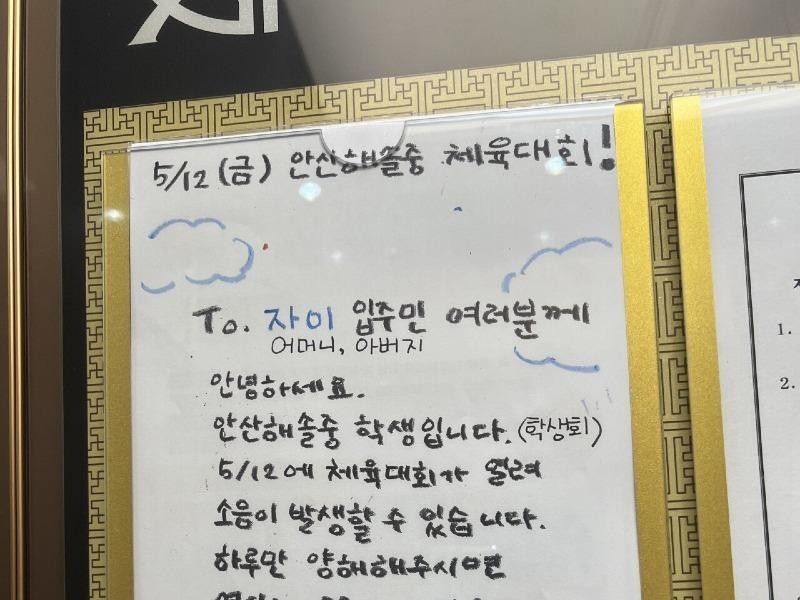 5/12 (금) 안산해솔중 체육대회!
To. 자이 입주민 여러분께
어머니, 아버지
안녕하세요.
안산해솔중 학생입니다. (학생회)
5/12에 체육대회가 열려
소음이 발생할 수 있습니다.
하루만 양해해주시면
1.
2.